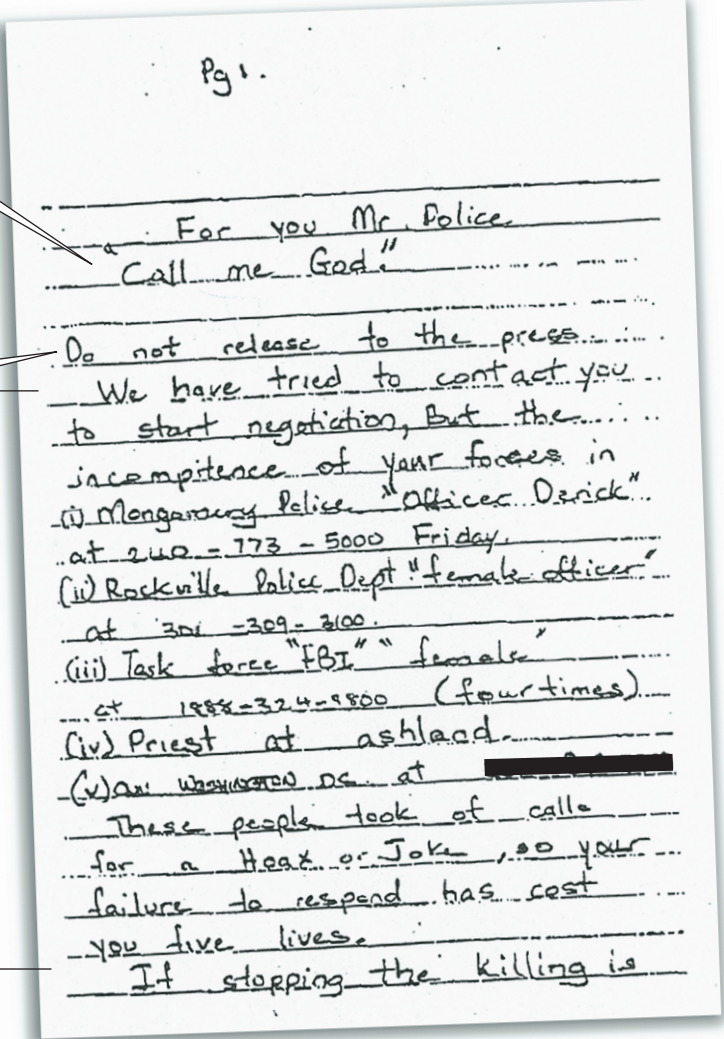 Pg 1.
For you Mr. Police
"Call me God."
Do not release to the press
We have tried to contact you
to start negotiation, But the
incompitence of your forces in
(i) Mongomery Police "Officer Derick"
at 240-773-5000 Friday.
(ii) Rockville Police Dept "female officer"
at 301-309-3100.
(iii) Task force "FBI" "female"
at 1888-324-9800 (four times)
(iv) Priest at ashland.
(v) WASHINGTON DC at
These people took of calls
for a Hoax or Joke, so your
failure to respond has cost
you five lives.
If stopping the killing is